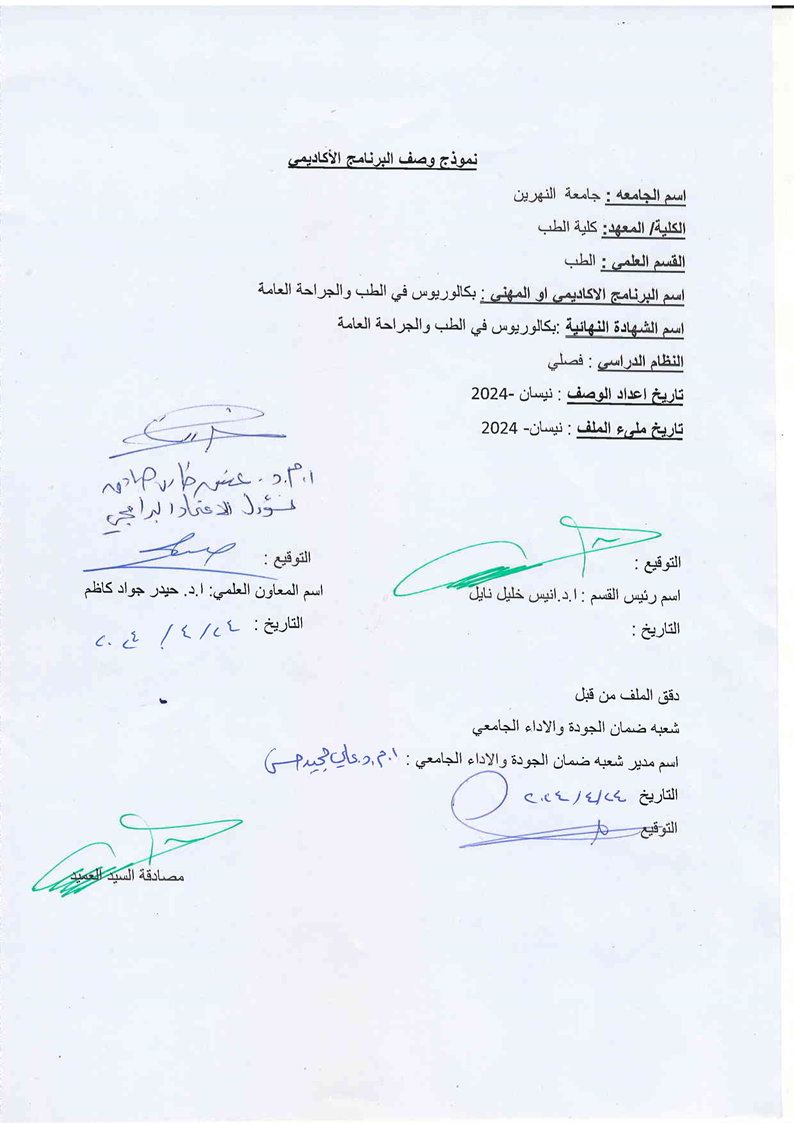 نموذج وصف البرنامج الأكاديمي
اسم الجامعه : جامعة النهرين
الكلية/ المعهد: كلية الطب
القسم العلمي : الطب
اسم البرنامج الاكاديمي او المهني : بكالوريوس في الطب والجراحة العامة
اسم الشهادة النهائية :بكالوريوس في الطب والجراحة العامة
النظام الدراسي : فصلي
تاريخ اعداد الوصف : نيسان -2024
تاريخ ملىء الملف : نيسان- 2024
ا.م.د. صادق
مسؤول الاعتماد البرامجي
التوقيع :
اسم رئيس القسم : ا.د.انيس خليل نايل
التاريخ :
التوقيع :
اسم المعاون العلمي: ا.د. حيدر جواد كاظم
التاريخ : ٢٤ / ٤ / ٢٠٢٤
دقق الملف من قبل
شعبه ضمان الجودة والاداء الجامعي
اسم مدير شعبه ضمان الجودة والاداء الجامعي : ا.م.د.علي مجيد حسن
التاريخ ٢٠٢٤/٤/٢٤
التوقيع
مصادقة السيد العميد